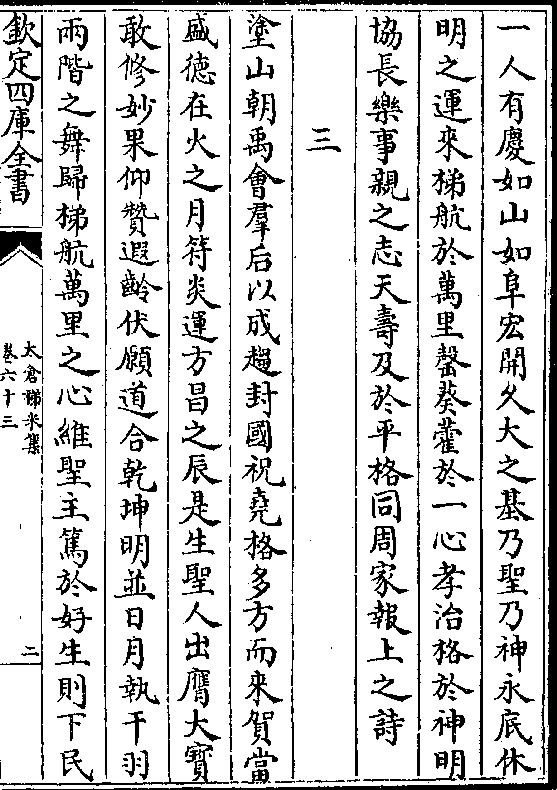 一人有慶如山如阜宏開久大之基乃聖乃神永底休
明之運來梯航於萬里罄葵藿於一心孝治格於神明
協長樂事親之志天壽及於平格同周家報上之詩
三
塗山朝禹會羣后以成趨封國祝堯格多方而來賀當
盛德在火之月符炎運方昌之辰是生聖人出膺大寶
敢修妙果仰贊遐齡伏願道合乾坤明並日月執干羽
兩階之舞歸梯航萬里之心維聖主篤於好生則下民
欽定四庫全書
太倉稊米集
卷六十三
二